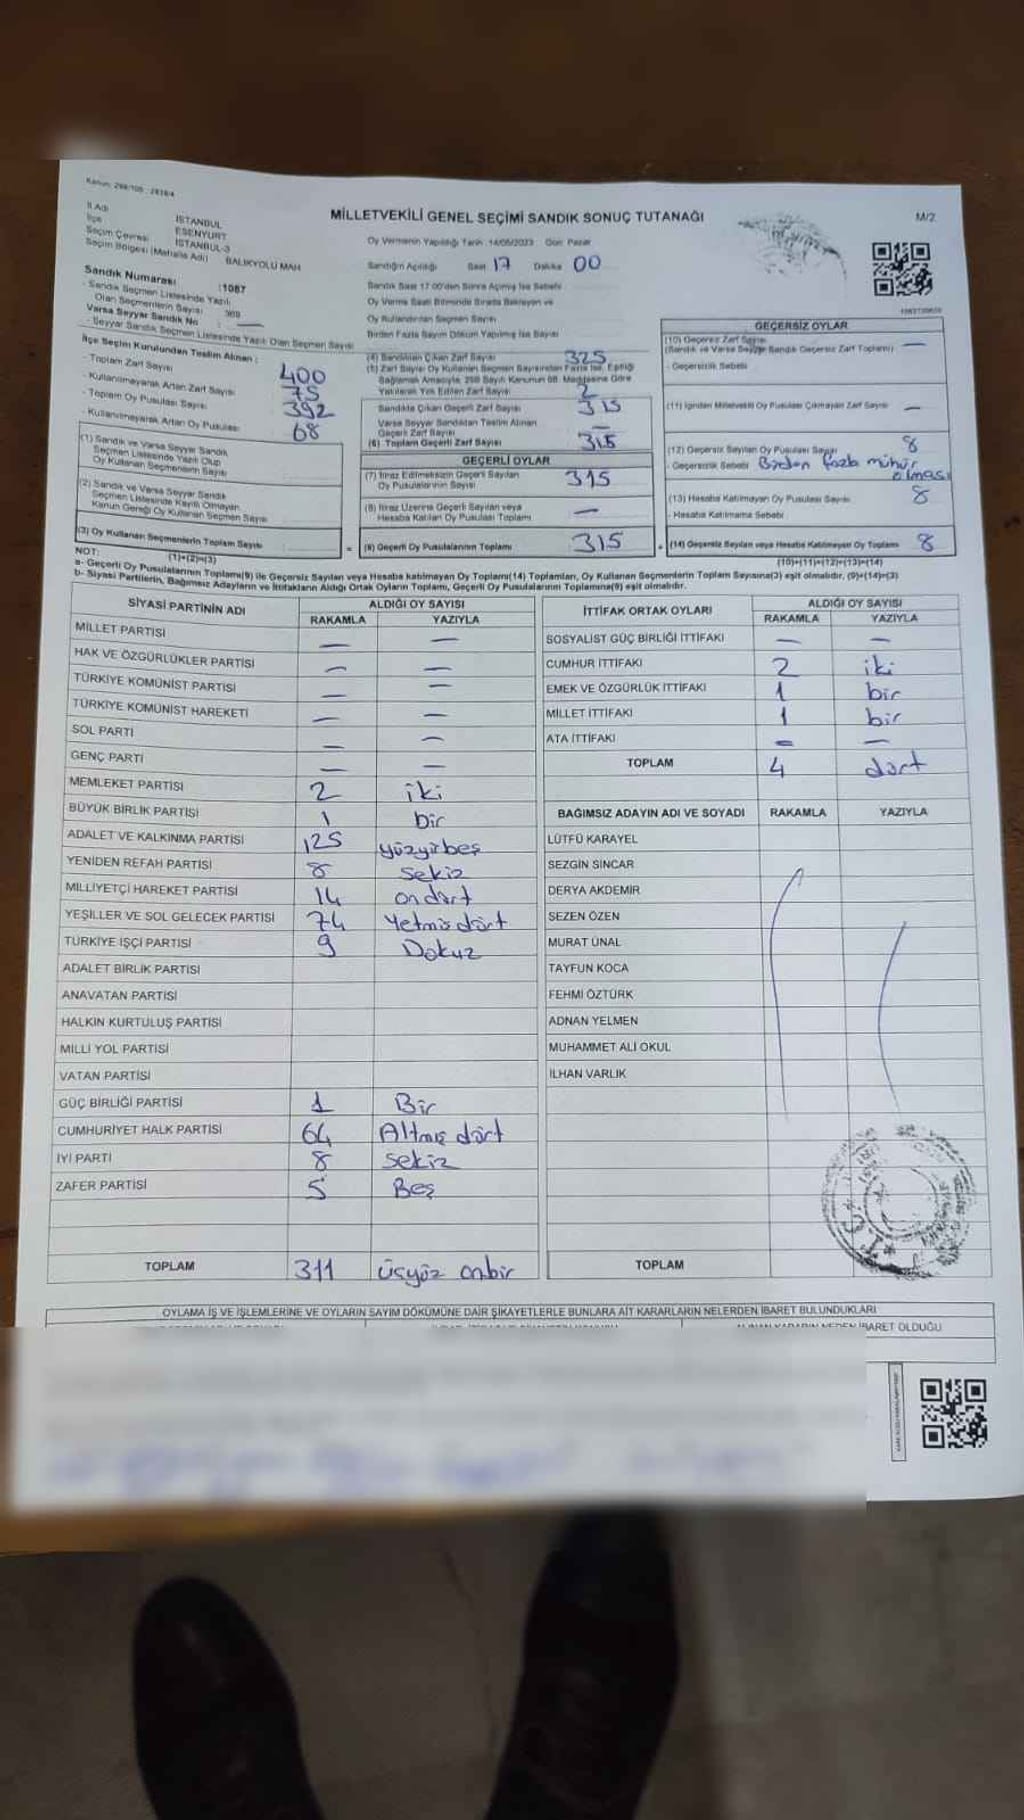 Kanun: 298/105 : 2839/4
MİLLETVEKİLİ GENEL SEÇİMİ SANDIK SONUÇ TUTANAĞI
M/2
İl Adı İSTANBUL
İlçe ESENYURT
Seçim Çevresi İSTANBUL-3
Seçim Bölgesi (Mahalle Adı) BALIKYOLU MAH
Oy Vermenin Yapıldığı Tarih : 14/05/2023 Gün: Pazar
Sandığın Açıldığı Saat 17 Dakika 00
Sandık Saat 17.00'den Sonra Açılmış İse Sebebi
Oy Verme Saati Bitiminde Sırada Bekleyen ve
Oy Kullandırılan Seçmen Sayısı
Birden Fazla Sayım Döküm Yapılmış İse Sayısı
Sandık Numarası :1087
- Sandık Seçmen Listesinde Yazılı
Olan Seçmenlerin Sayısı
Varsa Seyyar Sandık No : —
- Seyyar Sandık Seçmen Listesinde Yazılı Olan Seçmen Sayısı
İlçe Seçim Kurulundan Teslim Alınan :
- Toplam Zarf Sayısı 400
- Kullanılmayarak Artan Zarf Sayısı 75
- Toplam Oy Pusulası Sayısı 392
- Kullanılmayarak Artan Oy Pusulası 68
(1) Sandık ve Varsa Seyyar Sandık
Seçmen Listesinde Yazılı Olup
Oy Kullanan Seçmenlerin Sayısı
(2) Sandık ve Varsa Seyyar Sandık
Seçmen Listesinde Kayıtlı Olmayan,
Kanun Gereği Oy Kullanan Seçmen Sayısı
(3) Oy Kullanan Seçmenlerin Toplam Sayısı
(1)+(2)=(3)
(4) Sandıktan Çıkan Zarf Sayısı 325
(5) Zarf Sayısı Oy Kullanan Seçmen Sayısından Fazla İse, Eşitliği
Sağlamak Amacıyla, 298 Sayılı Kanunun 98. Maddesine Göre
Yakılarak Yok Edilen Zarf Sayısı 2
Sandıkta Çıkan Geçerli Zarf Sayısı 315
Varsa Seyyar Sandıktan Teslim Alınan
Geçerli Zarf Sayısı —
(6) Toplam Geçerli Zarf Sayısı 315
GEÇERLİ OYLAR
(7) İtiraz Edilmeksizin Geçerli Sayılan
Oy Pusulalarının Sayısı 315
(8) İtiraz Üzerine Geçerli Sayılan veya
Hesaba Katılan Oy Pusulası Toplamı —
(9) Geçerli Oy Pusulalarının Toplamı 315
GEÇERSİZ OYLAR
(10) Geçersiz Zarf Sayısı —
(Sandık ve Varsa Seyyar Sandık Geçersiz Zarf Toplamı)
- Geçersizlik Sebebi
(11) İçinden Milletvekili Oy Pusulası Çıkmayan Zarf Sayısı —
(12) Geçersiz Sayılan Oy Pusulası Sayısı 8
- Geçersizlik Sebebi Birden fazla mühür
olması
(13) Hesaba Katılmayan Oy Pusulası Sayısı 8
- Hesaba Katılmama Sebebi
(14) Geçersiz Sayılan veya Hesaba Katılmayan Oy Toplamı 8
(10)+(11)+(12)+(13)=(14)
NOT:
a- Geçerli Oy Pusulalarının Toplamı(9) ile Geçersiz Sayılan veya Hesaba katılmayan Oy Toplamı(14) Toplamları, Oy Kullanan Seçmenlerin Toplam Sayısına(3) eşit olmalıdır. (9)+(14)=(3)
b- Siyasi Partilerin, Bağımsız Adayların ve İttifakların Aldığı Ortak Oyların Toplamı, Geçerli Oy Pusulalarının Toplamına(9) eşit olmalıdır.
SİYASİ PARTİNİN ADI ALDIĞI OY SAYISI
RAKAMLA YAZIYLA
MİLLET PARTİSİ — —
HAK VE ÖZGÜRLÜKLER PARTİSİ — —
TÜRKİYE KOMÜNİST PARTİSİ — —
TÜRKİYE KOMÜNİST HAREKETİ — —
SOL PARTİ — —
GENÇ PARTİ — —
MEMLEKET PARTİSİ 2 iki
BÜYÜK BİRLİK PARTİSİ 1 bir
ADALET VE KALKINMA PARTİSİ 125 yüzyirbeş
YENİDEN REFAH PARTİSİ 8 sekiz
MİLLİYETÇİ HAREKET PARTİSİ 14 ondört
YEŞİLLER VE SOL GELECEK PARTİSİ 74 Yetmiş dört
TÜRKİYE İŞÇİ PARTİSİ 9 Dokuz
ADALET BİRLİK PARTİSİ
ANAVATAN PARTİSİ
HALKIN KURTULUŞ PARTİSİ
MİLLİ YOL PARTİSİ
VATAN PARTİSİ
GÜÇ BİRLİĞİ PARTİSİ 1 Bir
CUMHURİYET HALK PARTİSİ 64 Altmış dört
İYİ PARTİ 8 sekiz
ZAFER PARTİSİ 5 Beş
TOPLAM 311 üçyüz onbir
İTTİFAK ORTAK OYLARI ALDIĞI OY SAYISI
RAKAMLA YAZIYLA
SOSYALİST GÜÇ BİRLİĞİ İTTİFAKI — —
CUMHUR İTTİFAKI 2 iki
EMEK VE ÖZGÜRLÜK İTTİFAKI 1 bir
MİLLET İTTİFAKI 1 bir
ATA İTTİFAKI — —
TOPLAM 4 dört
BAĞIMSIZ ADAYIN ADI VE SOYADI RAKAMLA YAZIYLA
LÜTFÜ KARAYEL
SEZGİN SİNCAR
DERYA AKDEMİR
SEZEN ÖZEN
MURAT ÜNAL
TAYFUN KOCA
FEHMİ ÖZTÜRK
ADNAN YELMEN
MUHAMMET ALİ OKUL
İLHAN VARLIK
TOPLAM
OYLAMA İŞ VE İŞLEMLERİNE VE OYLARIN SAYIM DÖKÜMÜNE DAİR ŞİKAYETLERLE BUNLARA AİT KARARLARIN NELERDEN İBARET BULUNDUKLARI
ALINAN KARARIN NEDEN İBARET OLDUĞU